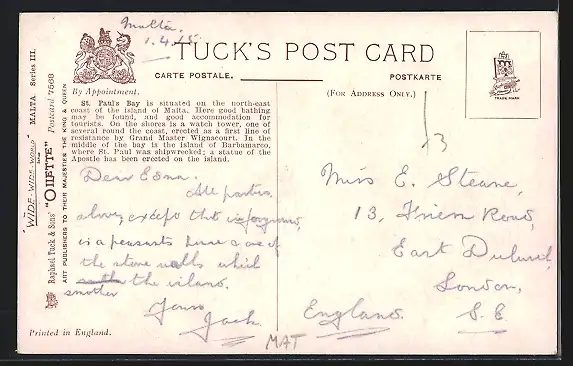 Malta.
1.4.15
TUCK'S POST CARD
CARTE POSTALE.
POSTKARTE
By Appointment.
(FOR ADDRESS ONLY.)
TRADE MARK
"WIDE-WIDE-WORLD" MALTA Series III.
Raphael Tuck & Sons' "OILETTE" Postcard 7568
ART PUBLISHERS TO THEIR MAJESTIES THE KING & QUEEN
St. Paul's Bay is situated on the north-east
coast of the island of Malta. Here good bathing
may be found, and good accommodation for
tourists. On the shores is a watch tower, one of
several round the coast, erected as a first line of
resistance by Grand Master Wignacourt. In the
middle of the bay is the island of Barbamarco,
where St. Paul was shipwrecked; a statue of the
Apostle has been erected on the island.
Dear Edna.
All parties
above, except that in foreground,
is a peasants house & one of
the stone walls which
smother the island.
Yours
Jack.
13
Miss E. Steane,
13, Road,
East Dulwich,
London,
England. S.E.
MAT
Printed in England.